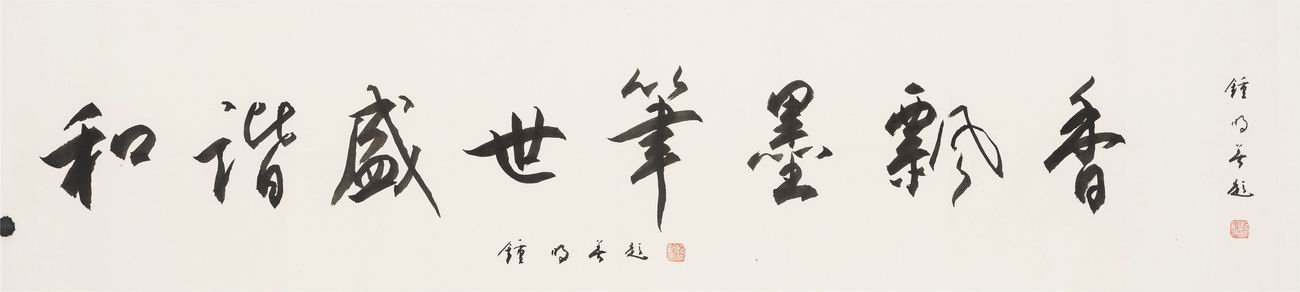 和諧盛世筆墨飄香
鍾明善題
鍾明善題